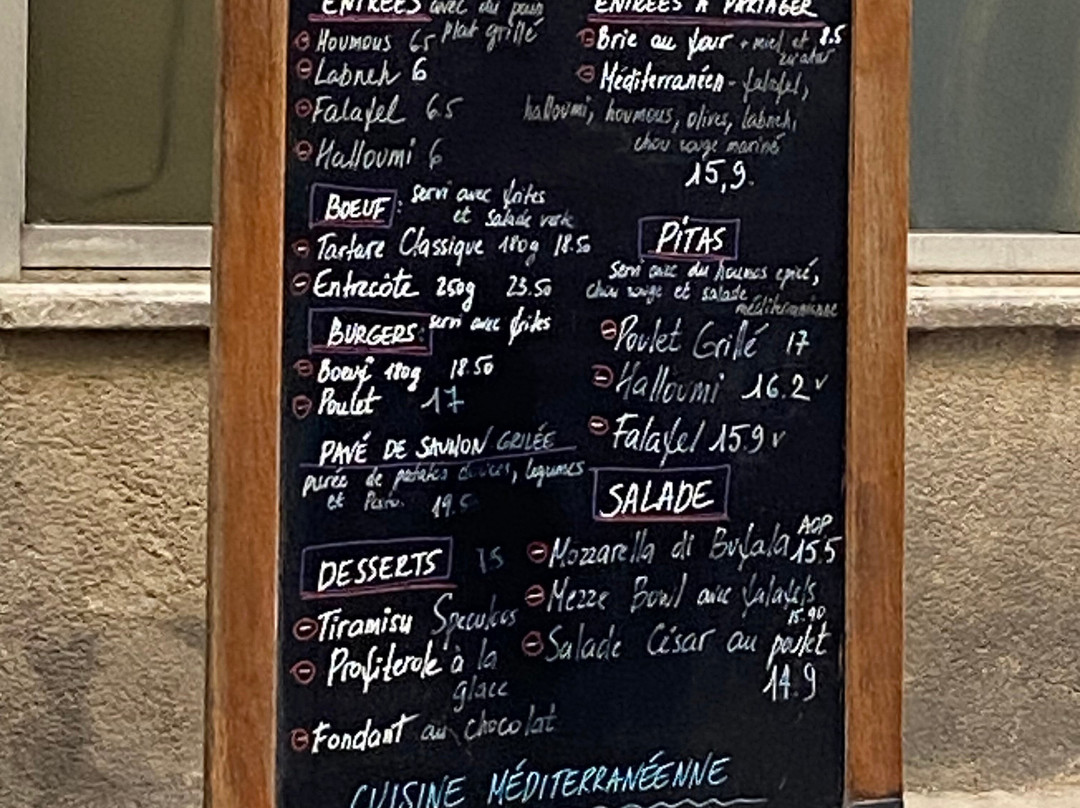 ENTRÉES avec du pain
plat grillé
Houmous 6.5
Labneh 6
Falafel 6.5
Halloumi 6
BOEUF: servi avec frites
et salade verte
Tartare Classique 180g 18.50
Entrecôte 250g 23.50
BURGERS: servi avec frites
Boeuf 180g 18.50
Poulet 17
PAVÉ DE SAUMON GRILÉE
purée de patates douces, legumes
et 19.5
DESSERTS
Tiramisu Speculoos
Profiterole à la
glace
Fondant au chocolat
ENTRÉES À PARTAGER
Brie au four + miel et 8.5
za'atar
Méditerranéen - falafel,
halloumi, houmous, olives, labneh,
chou rouge mariné
15,9.
PiTAS
Servi avec du houmos epicé,
chou rouge et salade
méditerranienne
Poulet Grillé 17
Halloumi 16.2 v
Falafel 15.9 v
SALADE
Mozzarella di Bufala AOP
15.5
Mezze Bowl avec falafels
15.90
Salade César au poulet
14.9
CUISINE MÉDITERRANÉENNE